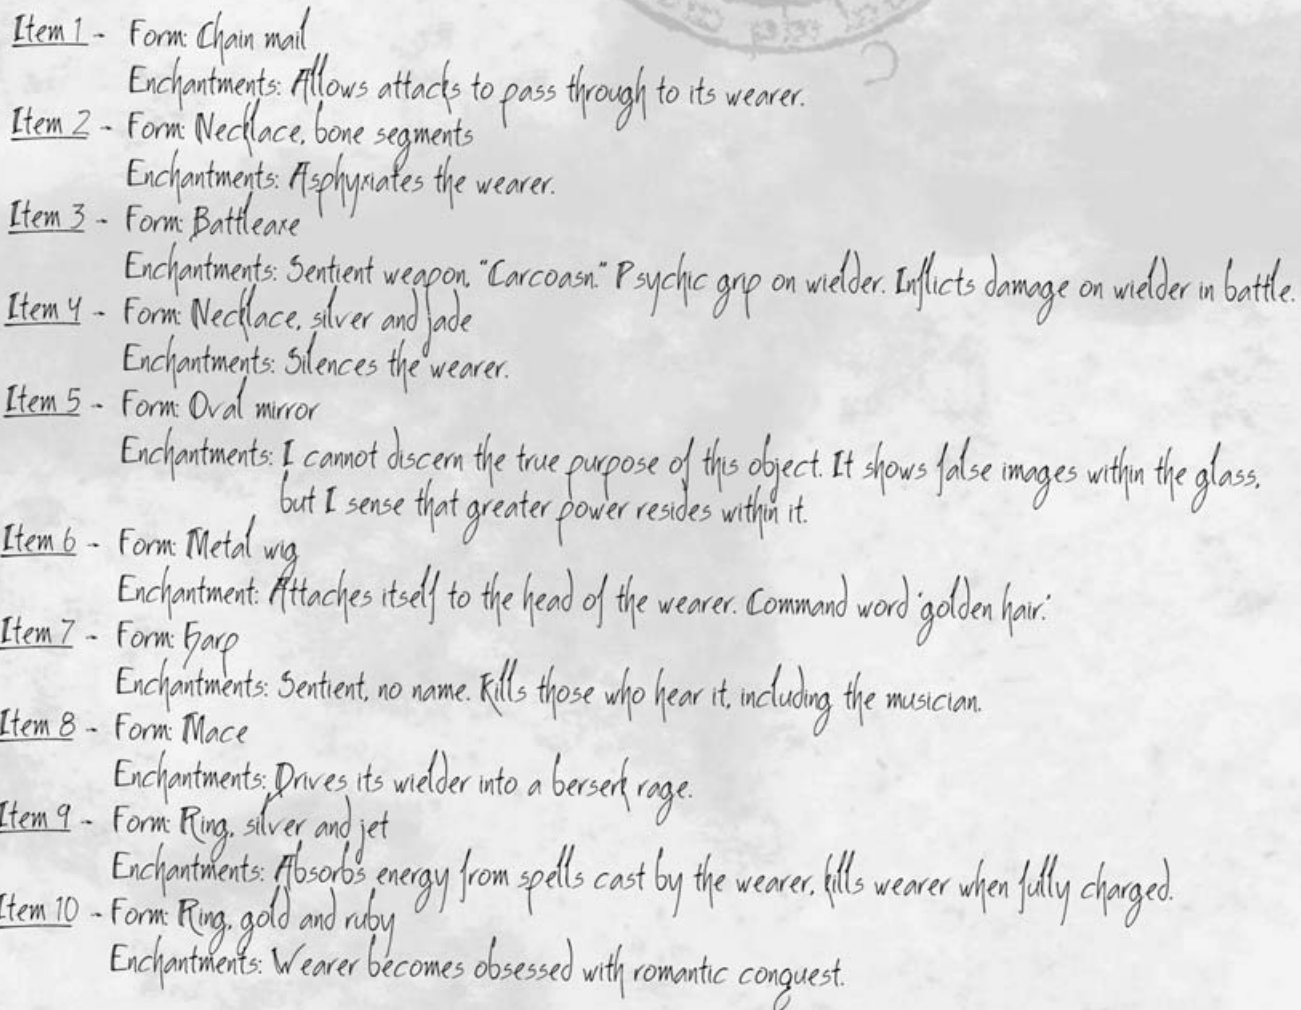 Item 1 - Form: Chain mail
Enchantments: Allows attacks to pass through to its wearer.
Item 2 - Form: Necklace, bone segments
Enchantments: Asphyxiates the wearer.
Item 3 - Form: Battleaxe
Enchantments: Sentient weapon, "Carcoasn." Psychic grip on wielder. Inflicts damage on wielder in battle.
Item 4 - Form: Necklace, silver and jade
Enchantments: Silences the wearer.
Item 5 - Form: Oval mirror
Enchantments: I cannot discern the true purpose of this object. It shows false images within the glass,
but I sense that greater power resides within it.
Item 6 - Form: Metal wig
Enchantment: Attaches itself to the head of the wearer. Command word 'golden hair.'
Item 7 - Form: Harp
Enchantments: Sentient, no name. Kills those who hear it, including the musician.
Item 8 - Form: Mace
Enchantments: Drives its wielder into a berserk rage.
Item 9 - Form: Ring, silver and jet
Enchantments: Absorbs energy from spells cast by the wearer, kills wearer when fully charged.
Item 10 - Form: Ring, gold and ruby
Enchantments: Wearer becomes obsessed with romantic conquest.